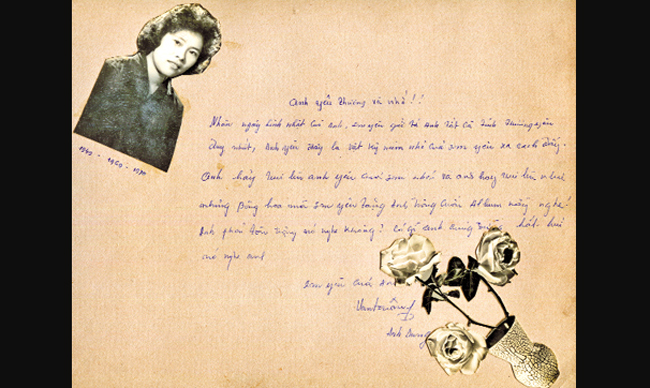 Anh yêu thương và nhớ!!
Nhân ngày sinh nhật của anh, em yêu gửi tới anh tất cả tình thương yêu
duy nhất, Anh yêu đây là vật kỷ niệm nhỏ của em yêu xa cách
Anh hãy vui lên anh yêu của em nhé và anh hãy vui lên như
những bông hoa mà em yêu tặng anh trong cuốn Album này nghe!
Anh phải tôn trọng nó nghe không? Có gì anh đừng hất hủi
nó nghe anh
Em yêu của anh